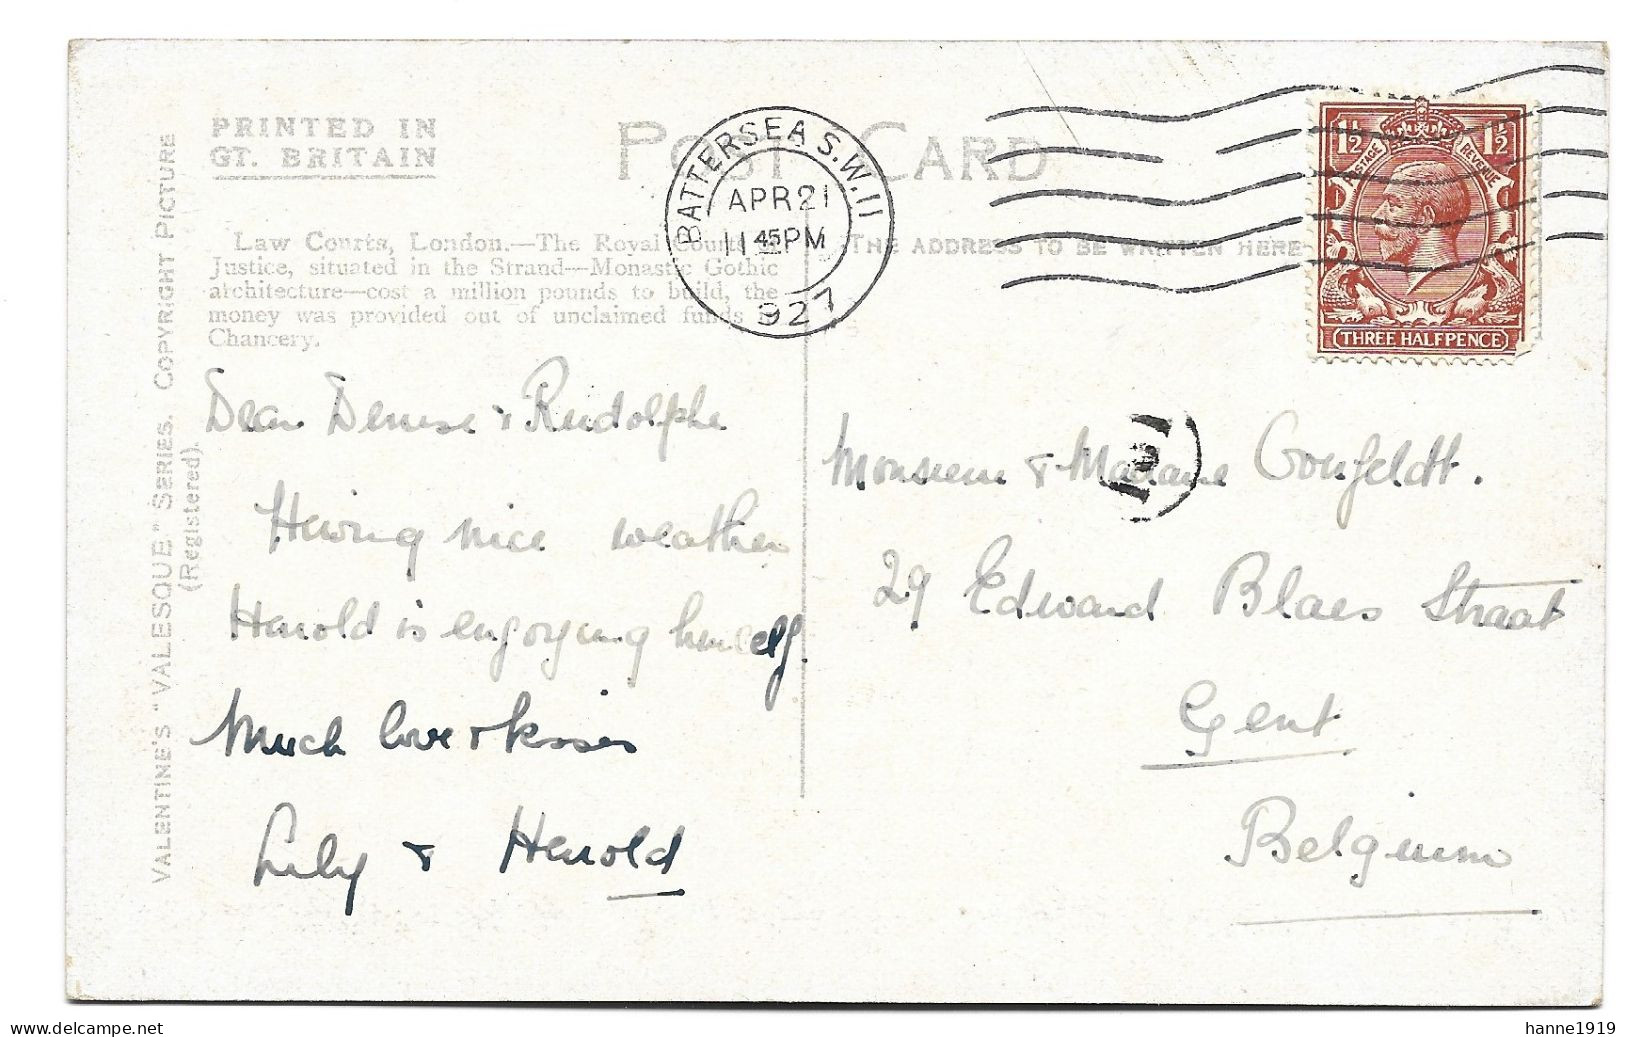 PRINTED IN
GT. BRITAIN
POST CARD
BATTERSEA S.W.11
APR 21
11 45 PM
927
1½ POSTAGE REVENUE 1½
THREE HALFPENCE
VALENTINE'S "VALESQUE" SERIES. COPYRIGHT PICTURE
(Registered).
Law Courts, London.—The Royal Courts
Justice, situated in the Strand—Monastic Gothic
architecture—cost a million pounds to build, the
money was provided out of unclaimed funds
Chancery.
THE ADDRESS TO BE WRITTEN HERE
Dear Denise & Rudolphe
Having nice weather
Harold is enjoying himself.
Much love & kisses
Lily & Harold
Monsieur & Madame
29 Edward Blaes Straat
Gent
Belgium
delcampe.net
hanne1919